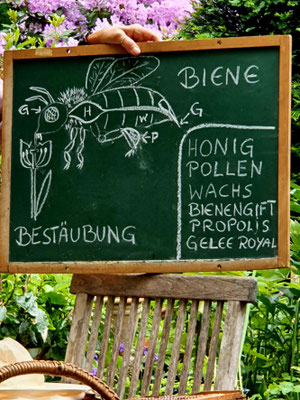 BIENE
G
G
H
W
P
HONIG
POLLEN
WACHS
BIENENGIFT
PROPOLIS
GELEE ROYAL
BESTÄUBUNG